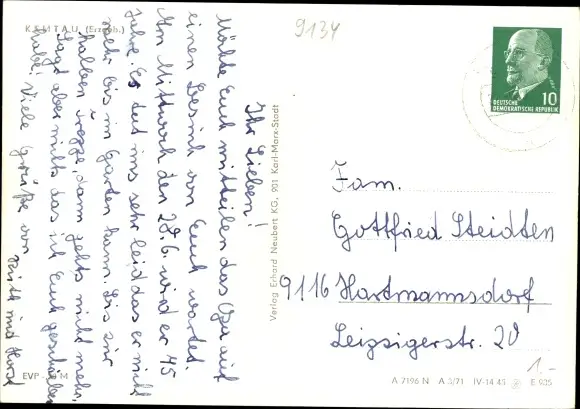 9134
K E M T A U (Erzgeb.)
Ihr Lieben!
Möchte Euch mitteilen das Opa auf
einen Besuch von Euch wartet.
Am Mittwoch den 28.6. wird er 75
Jahre. Es tut uns sehr leid das er nicht
mehr bis in Garten kann. Bis zur
halben Treppe, dann gehts nicht mehr.
Sagt aber nichts das ich Euch geschrieben
habe. Viele Grüße von
Ruth und Horst
EVP M
Verlag Erhard Neubert KG, 901 Karl-Marx-Stadt
10
DEUTSCHE
DEMOKRATISCHE REPUBLIK
Fam.
Gottfried Steidten
9116 Hartmannsdorf
Leipzigerstr. 20
1.-
A 7196 N A 3/71 IV-14-45 E 935